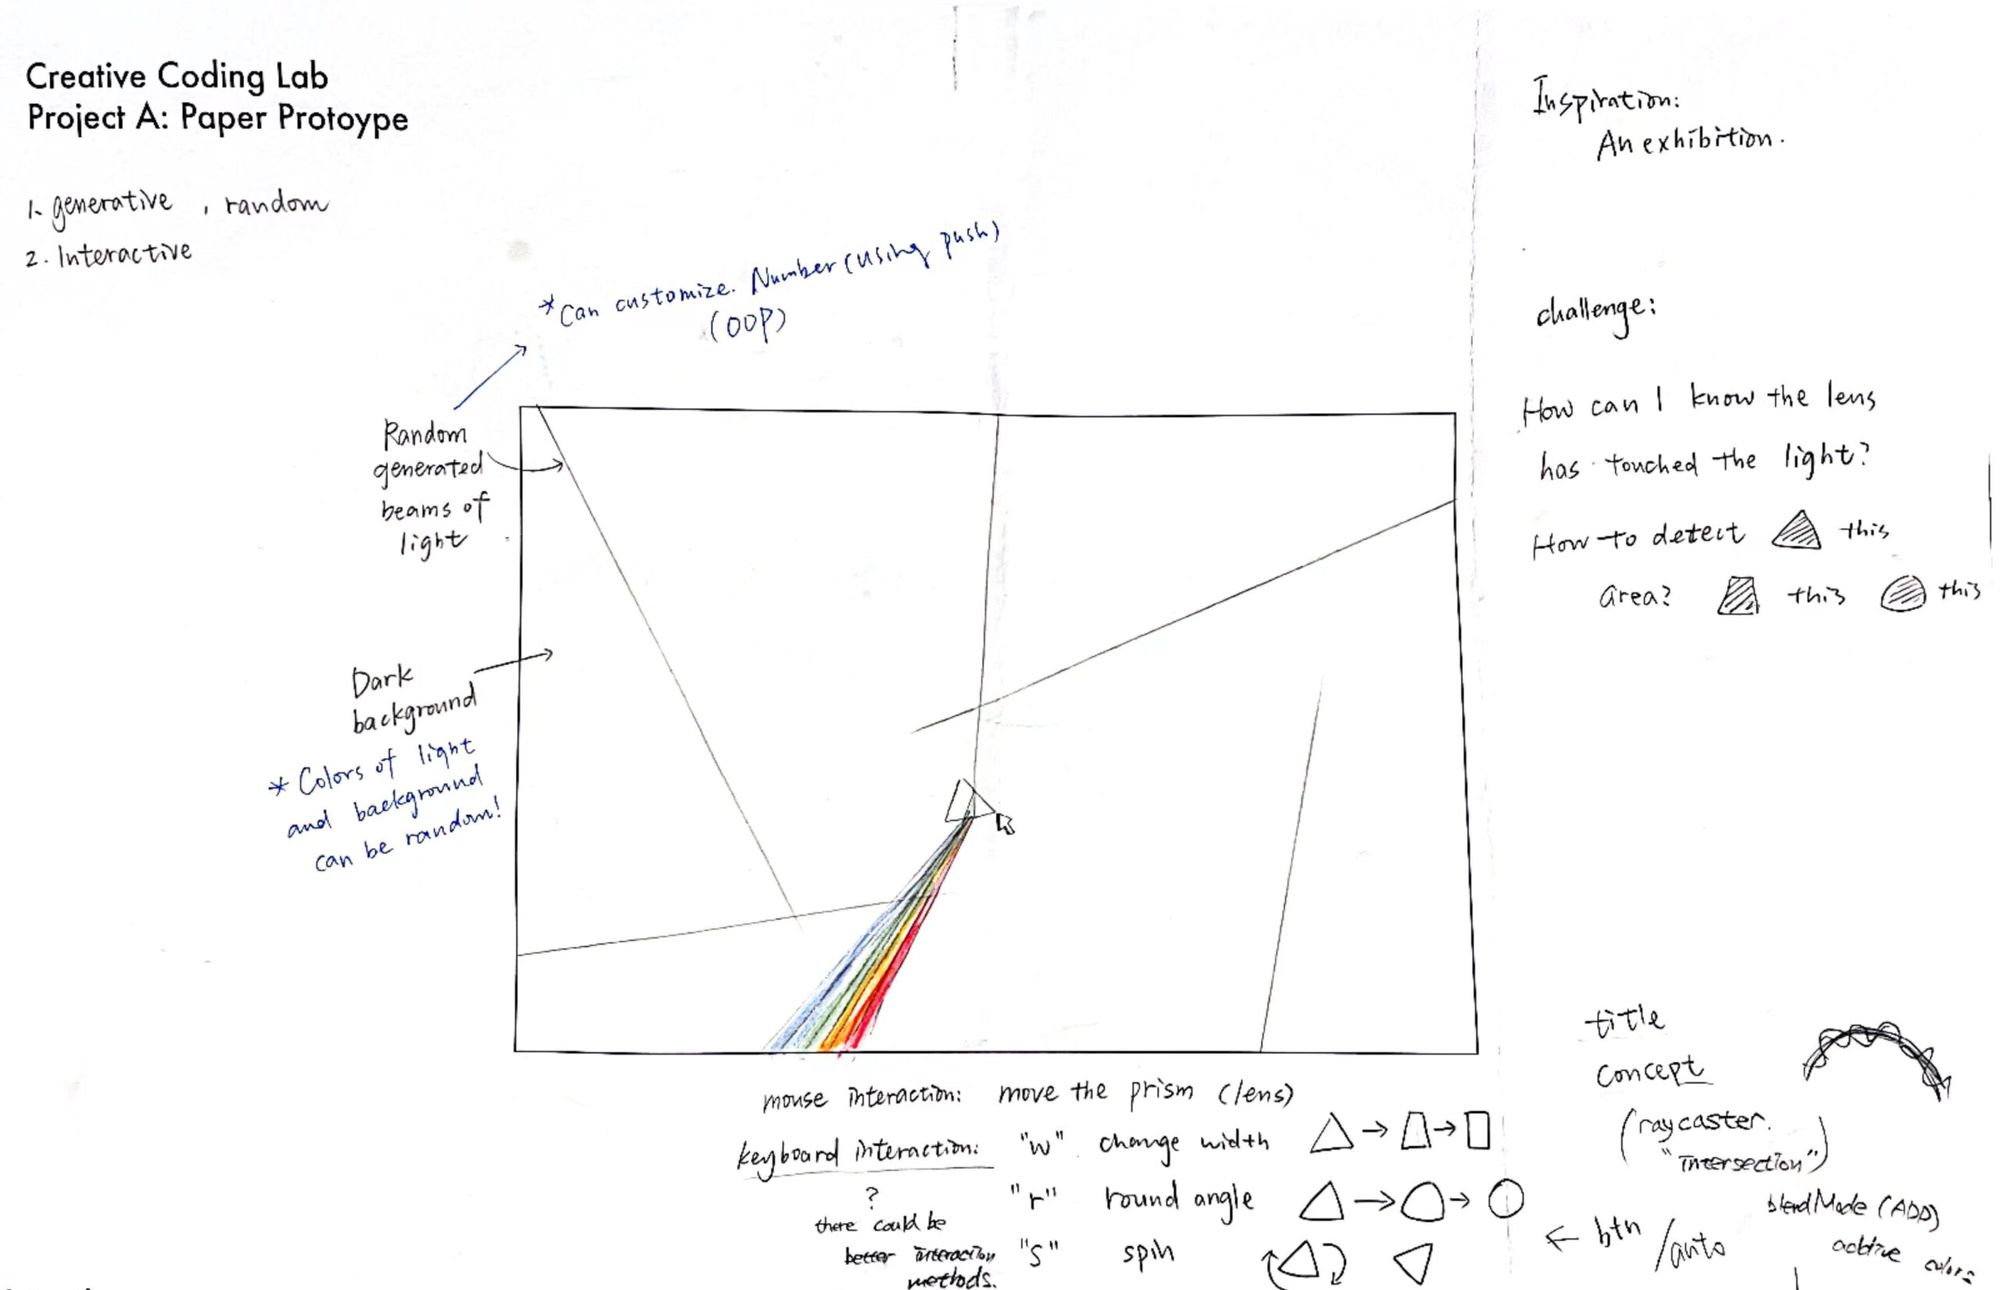 Creative Coding Lab
Project A: Paper Protoype
1. generative , random
2. Interactive
*Can customize. Number (using push)
(OOP)
Random
generated
beams of
light
Dark
background
* Colors of light
and background
can be random!
Inspiration:
An exhibition.
challenge:
How can I know the lens
has touched the light?
How to detect this
area? this this
mouse interaction: move the prism (lens)
keyboard interaction: "w" change width
? "r" round angle
there could be
better interaction "s" spin
methods.
← btn
/auto
title
concept
(raycaster.
"intersection")
blendMode (ADD)
colors